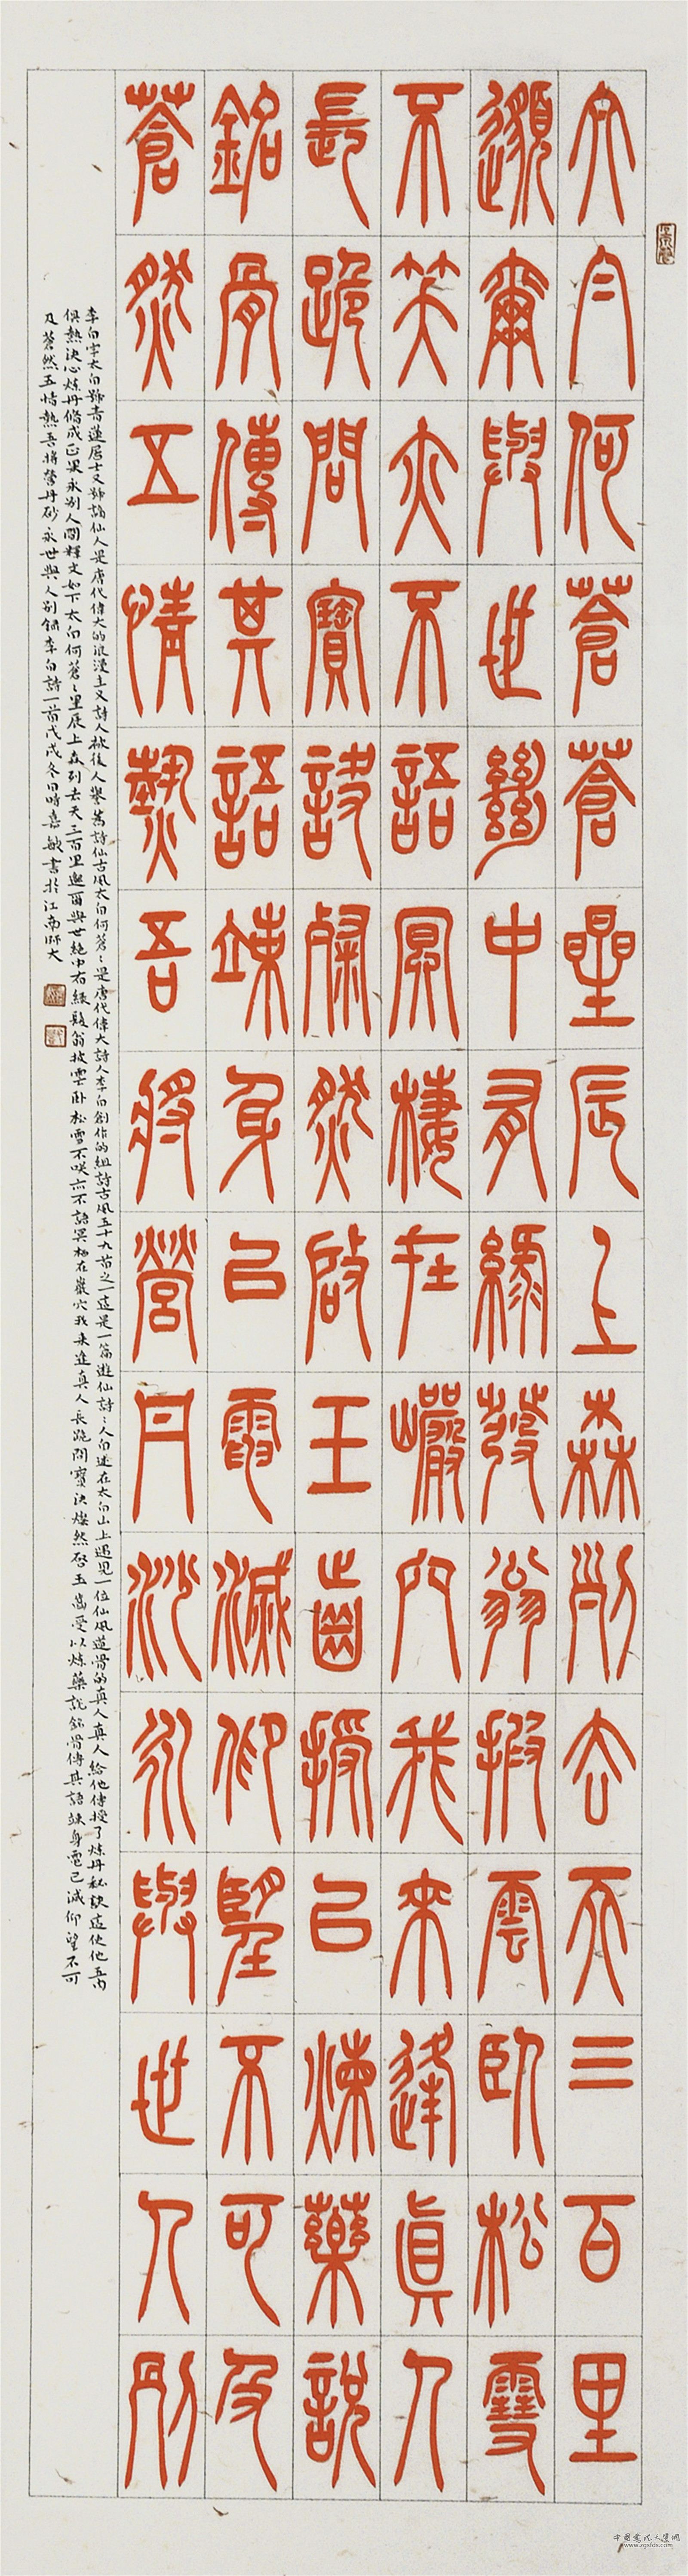 太白何蒼蒼星辰上森列去天三百里
邈爾與世絕中有綠髮翁披雲臥松雪
不笑亦不語冥棲在巖穴我來逢真人
長跪問寶訣粲然啟玉齒授以煉藥說
銘骨傳其語竦身已電滅仰望不可及
蒼然五情熱吾將營丹砂永與世人別
李白字太白號青蓮居士又號謫仙人是唐代偉大的浪漫主义詩人被後人譽為詩仙古風太白何蒼〻是唐代偉大詩人李白創作的組詩古風五十九首之一這是一篇遊仙詩詩人自述在太白山上遇見一位仙風道骨的真人真人給他傳授了煉丹秘訣這使他五內
俱熱決心煉丹修成正果永別人間釋文如下太白何蒼〻星辰上森列去天三百里邈爾與世絕中有綠髮翁披雲卧松雪不咲亦不語冥栖在巖穴我来逢真人長跪問寶决燦然啓玉齒受以煉藥說銘骨傳其語竦身電已滅仰望不可
及蒼然五情熱吾將營丹砂永世與人別録李白詩一首戊戌冬日時嘉敏書於江南師大
中国書法人選網
www.zgsfds.com